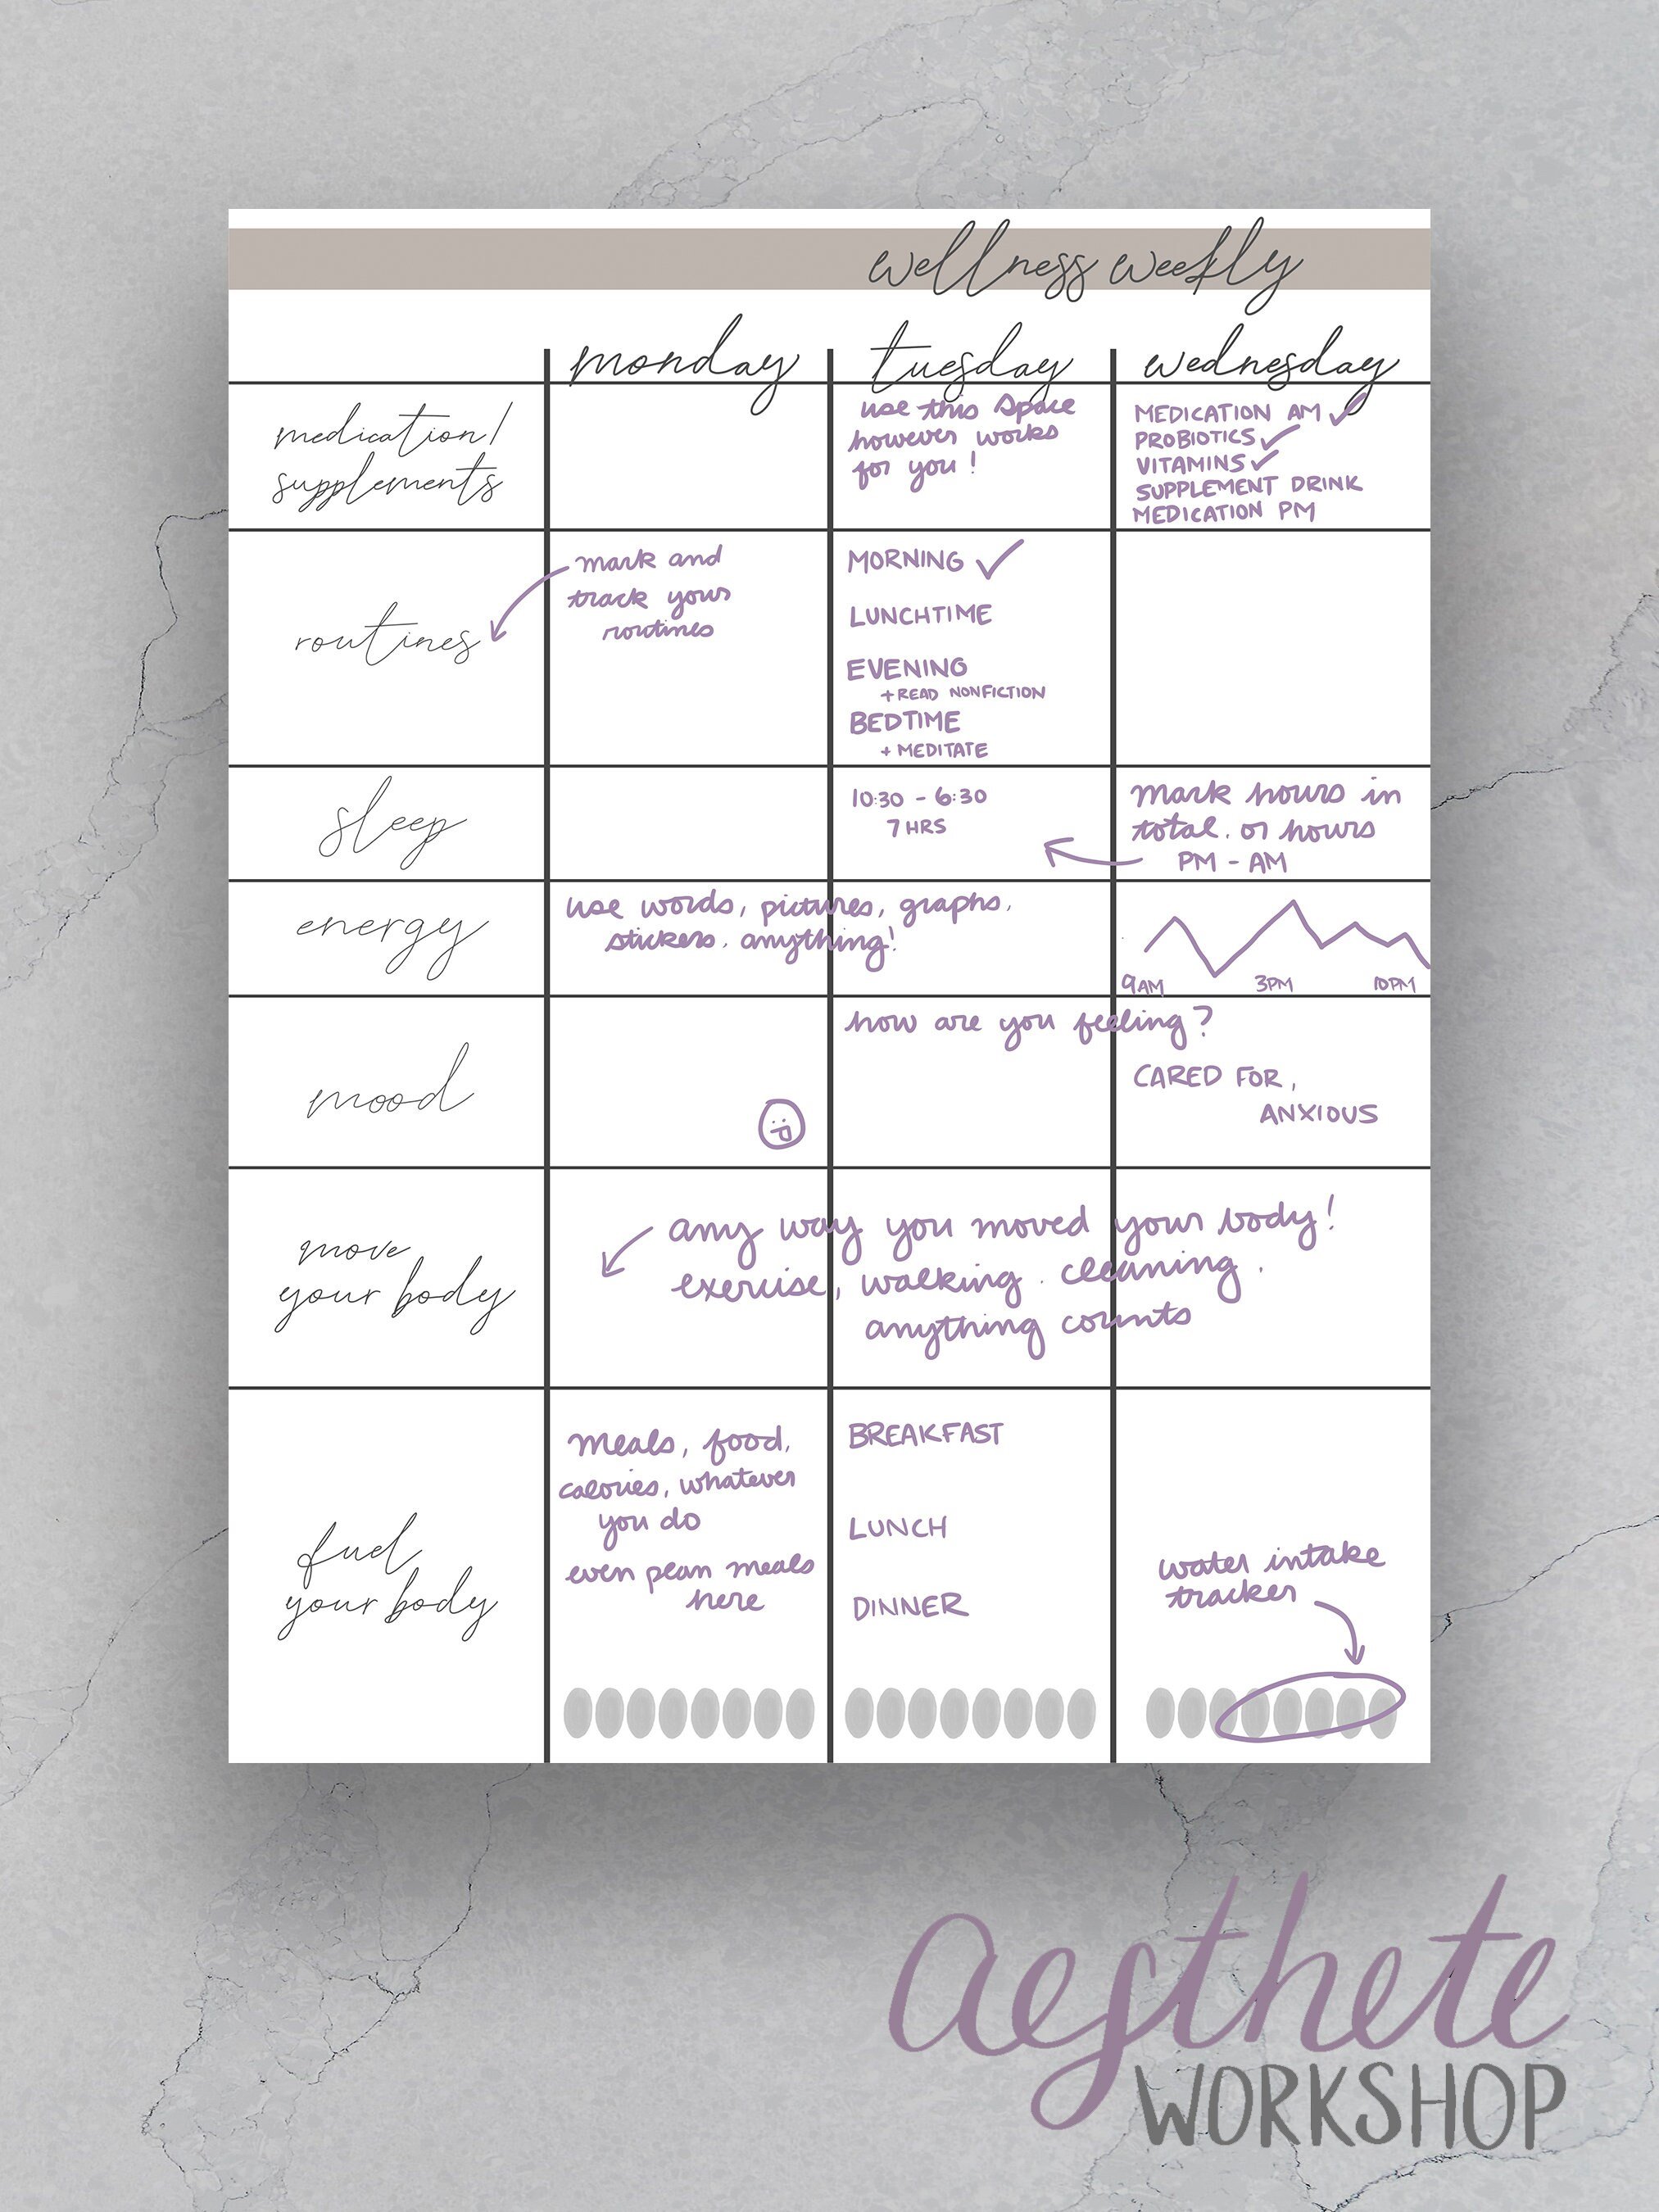 wellness weekly
monday tuesday wednesday
medication/
supplements
use this space
however works
for you!
MEDICATION AM
PROBIOTICS
VITAMINS
SUPPLEMENT DRINK
MEDICATION PM
routines
mark and
track your
routines
MORNING
LUNCHTIME
EVENING
+ READ NONFICTION
BEDTIME
+ MEDITATE
sleep
10:30 - 6:30
7 HRS
mark hours in
total. or hours
PM - AM
energy
use words, pictures, graphs,
stickers, anything!
9AM 3PM 10PM
mood
how are you feeling?
CARED FOR,
ANXIOUS
move
your body
any way you moved your body!
exercise, walking. cleaning.
anything counts
fuel
your body
meals, food,
calories, whatever
you do
even plan meals
here
BREAKFAST
LUNCH
DINNER
water intake
tracker
aesthete
WORKSHOP